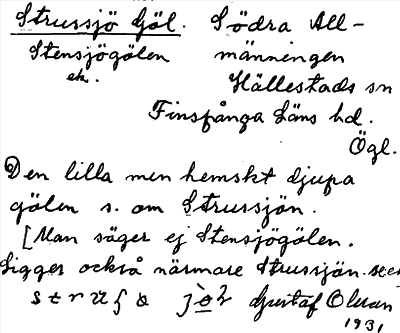 Strussjö Göl. Södra All-
Stensjögölen männingen
ek. Hällestads sn
Finspånga Läns hd.
Ögl.
Den lilla men hemskt djupa
gölen s. om Strussjön.
[Man säger ej Stensjögölen.
Ligger också närmare Strussjön.
Gustaf Oluan
1931